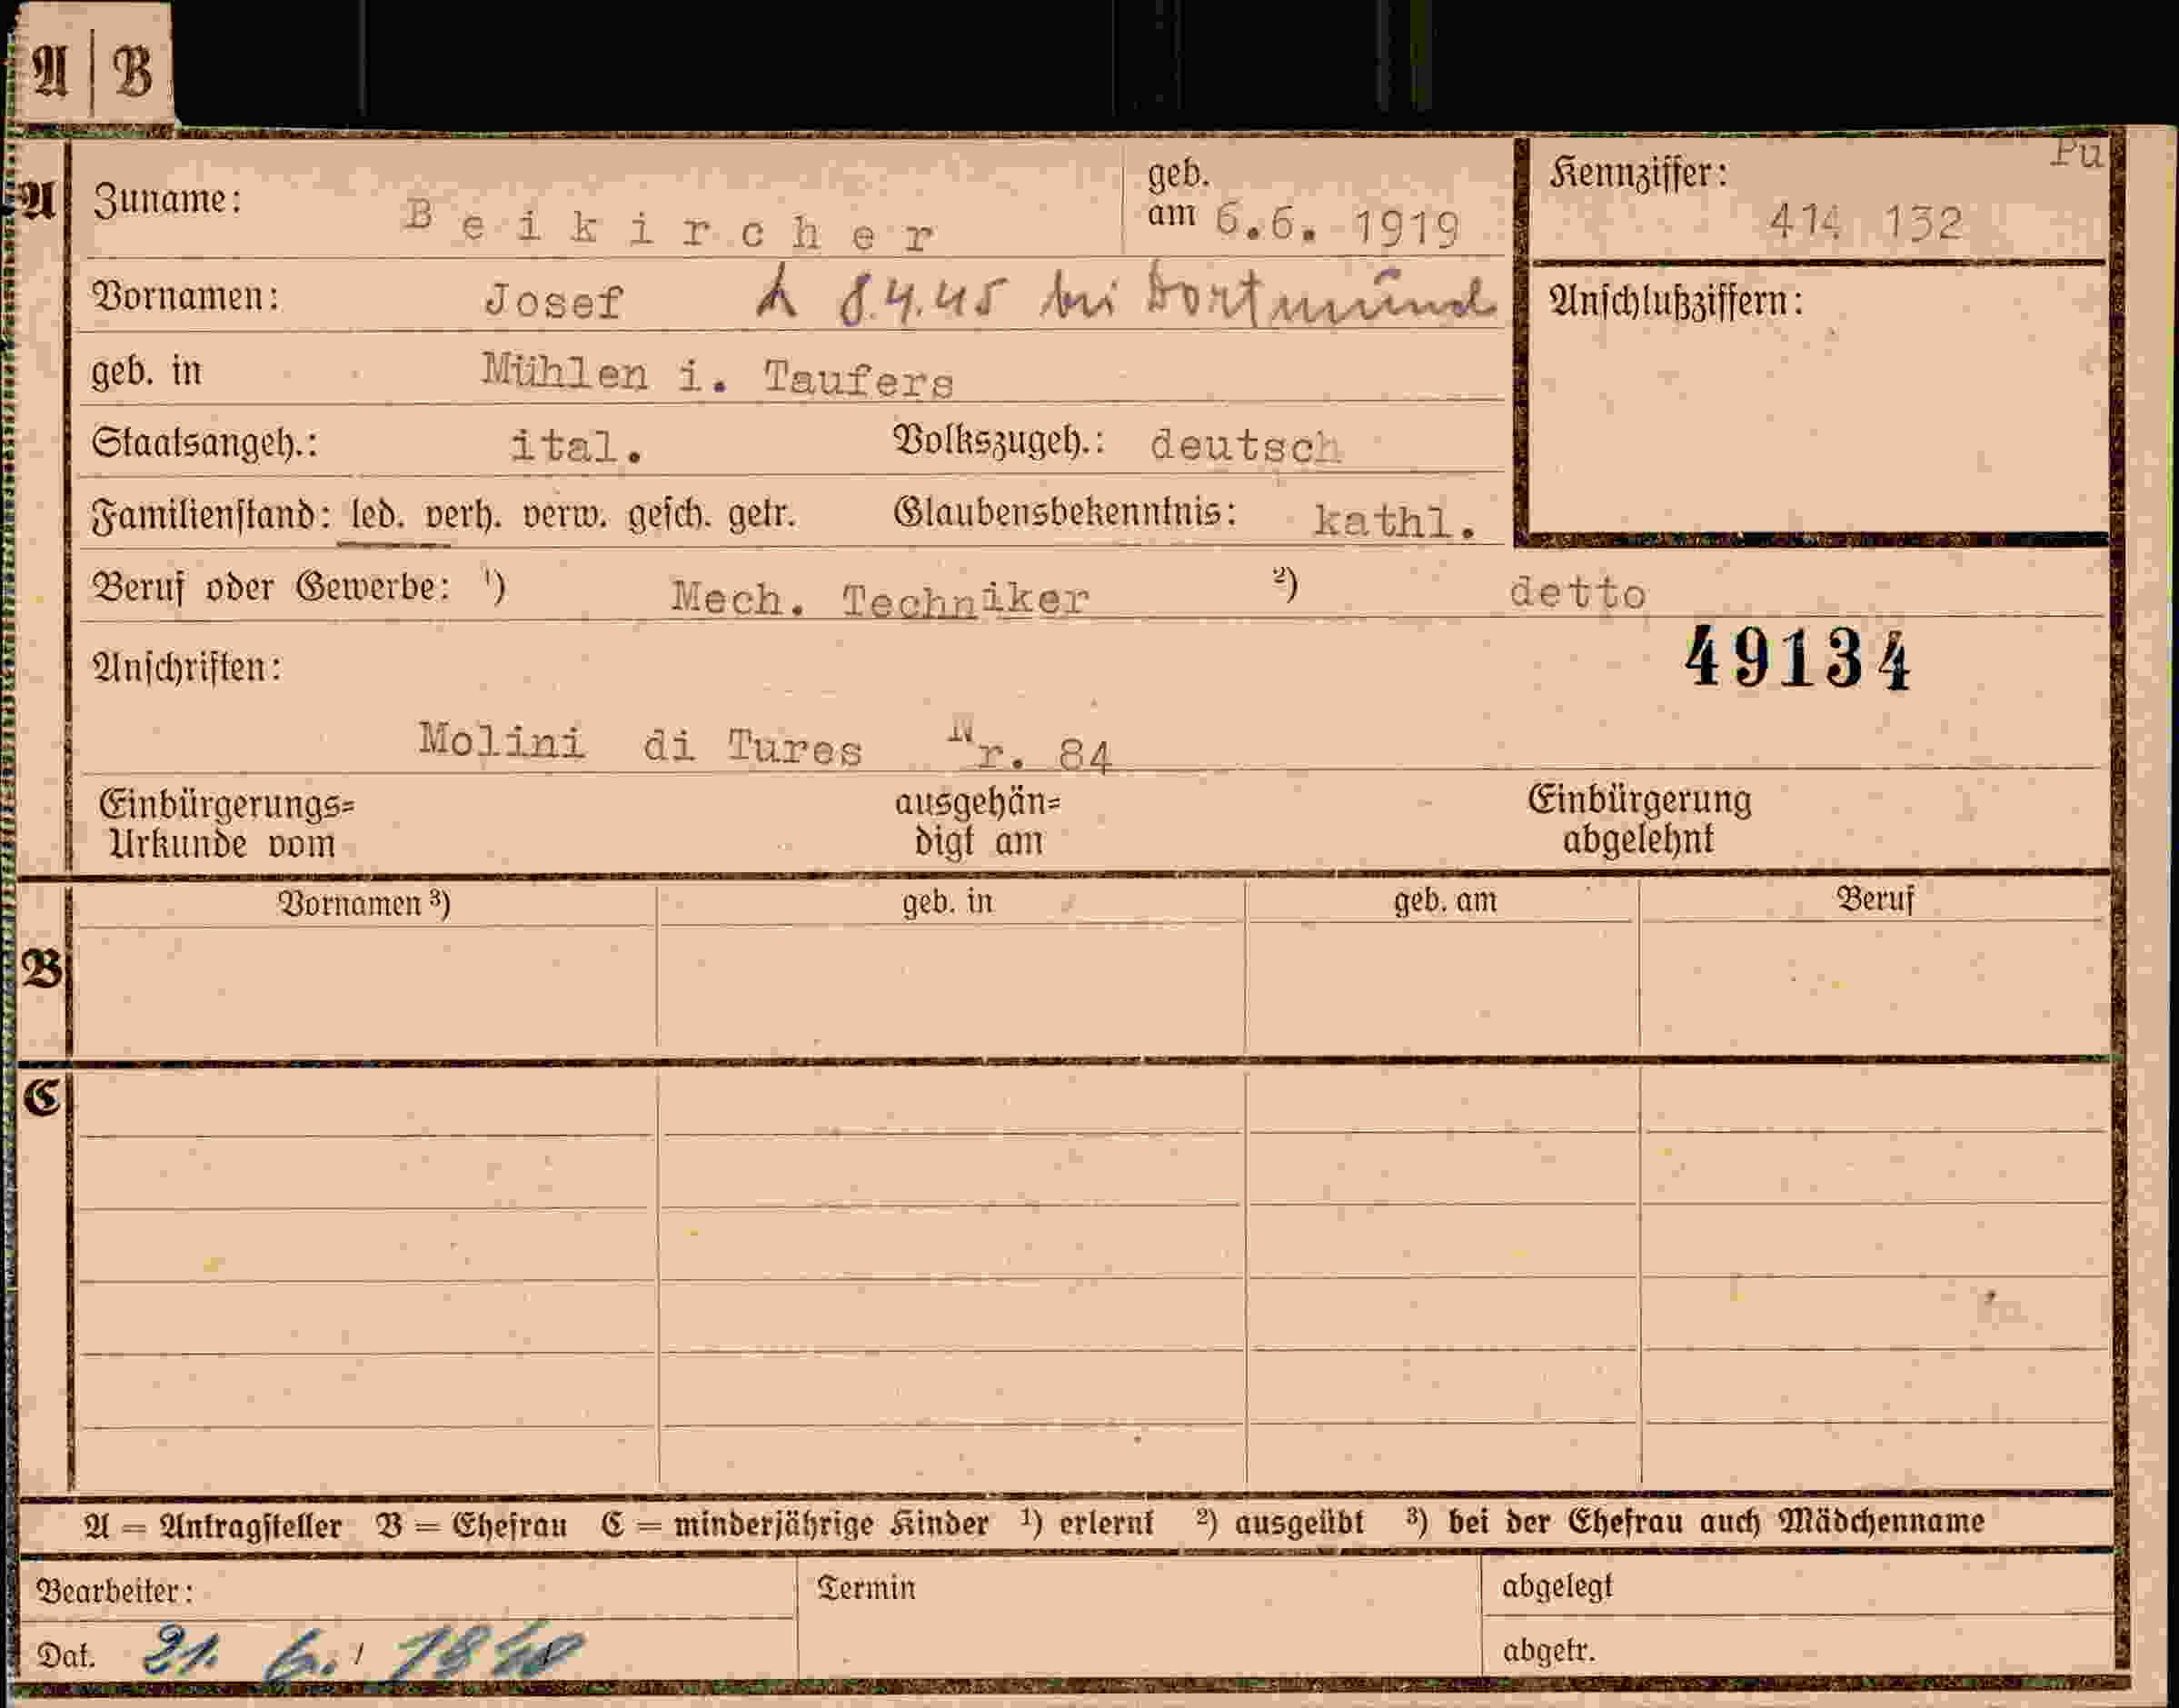 A | B
Pu
A Zuname: Beikircher geb. am 6.6. 1919 Kennziffer: 414 132
Vornamen: Josef 8.4.45 bei Dortmund Anschlußziffern:
geb. in Mühlen i. Taufers
Staatsangeh.: ital. Volkszugeh.: deutsch
Familienstand: led. verh. verw. gesch. getr. Glaubensbekenntnis: kathl.
Beruf oder Gewerbe: 1) Mech. Techniker 2) detto
Anschriften: 49134
Molini di Tures Nr. 84
Einbürgerungs= ausgehän= Einbürgerung
Urkunde vom digt am abgelehnt
Vornamen 3) geb. in geb. am Beruf
B
C
A = Antragsteller B = Ehefrau C = minderjährige Kinder 1) erlernt 2) ausgeübt 3) bei der Ehefrau auch Mädchenname
Bearbeiter: Termin abgelegt
Dat. 21. 6. abgetr.